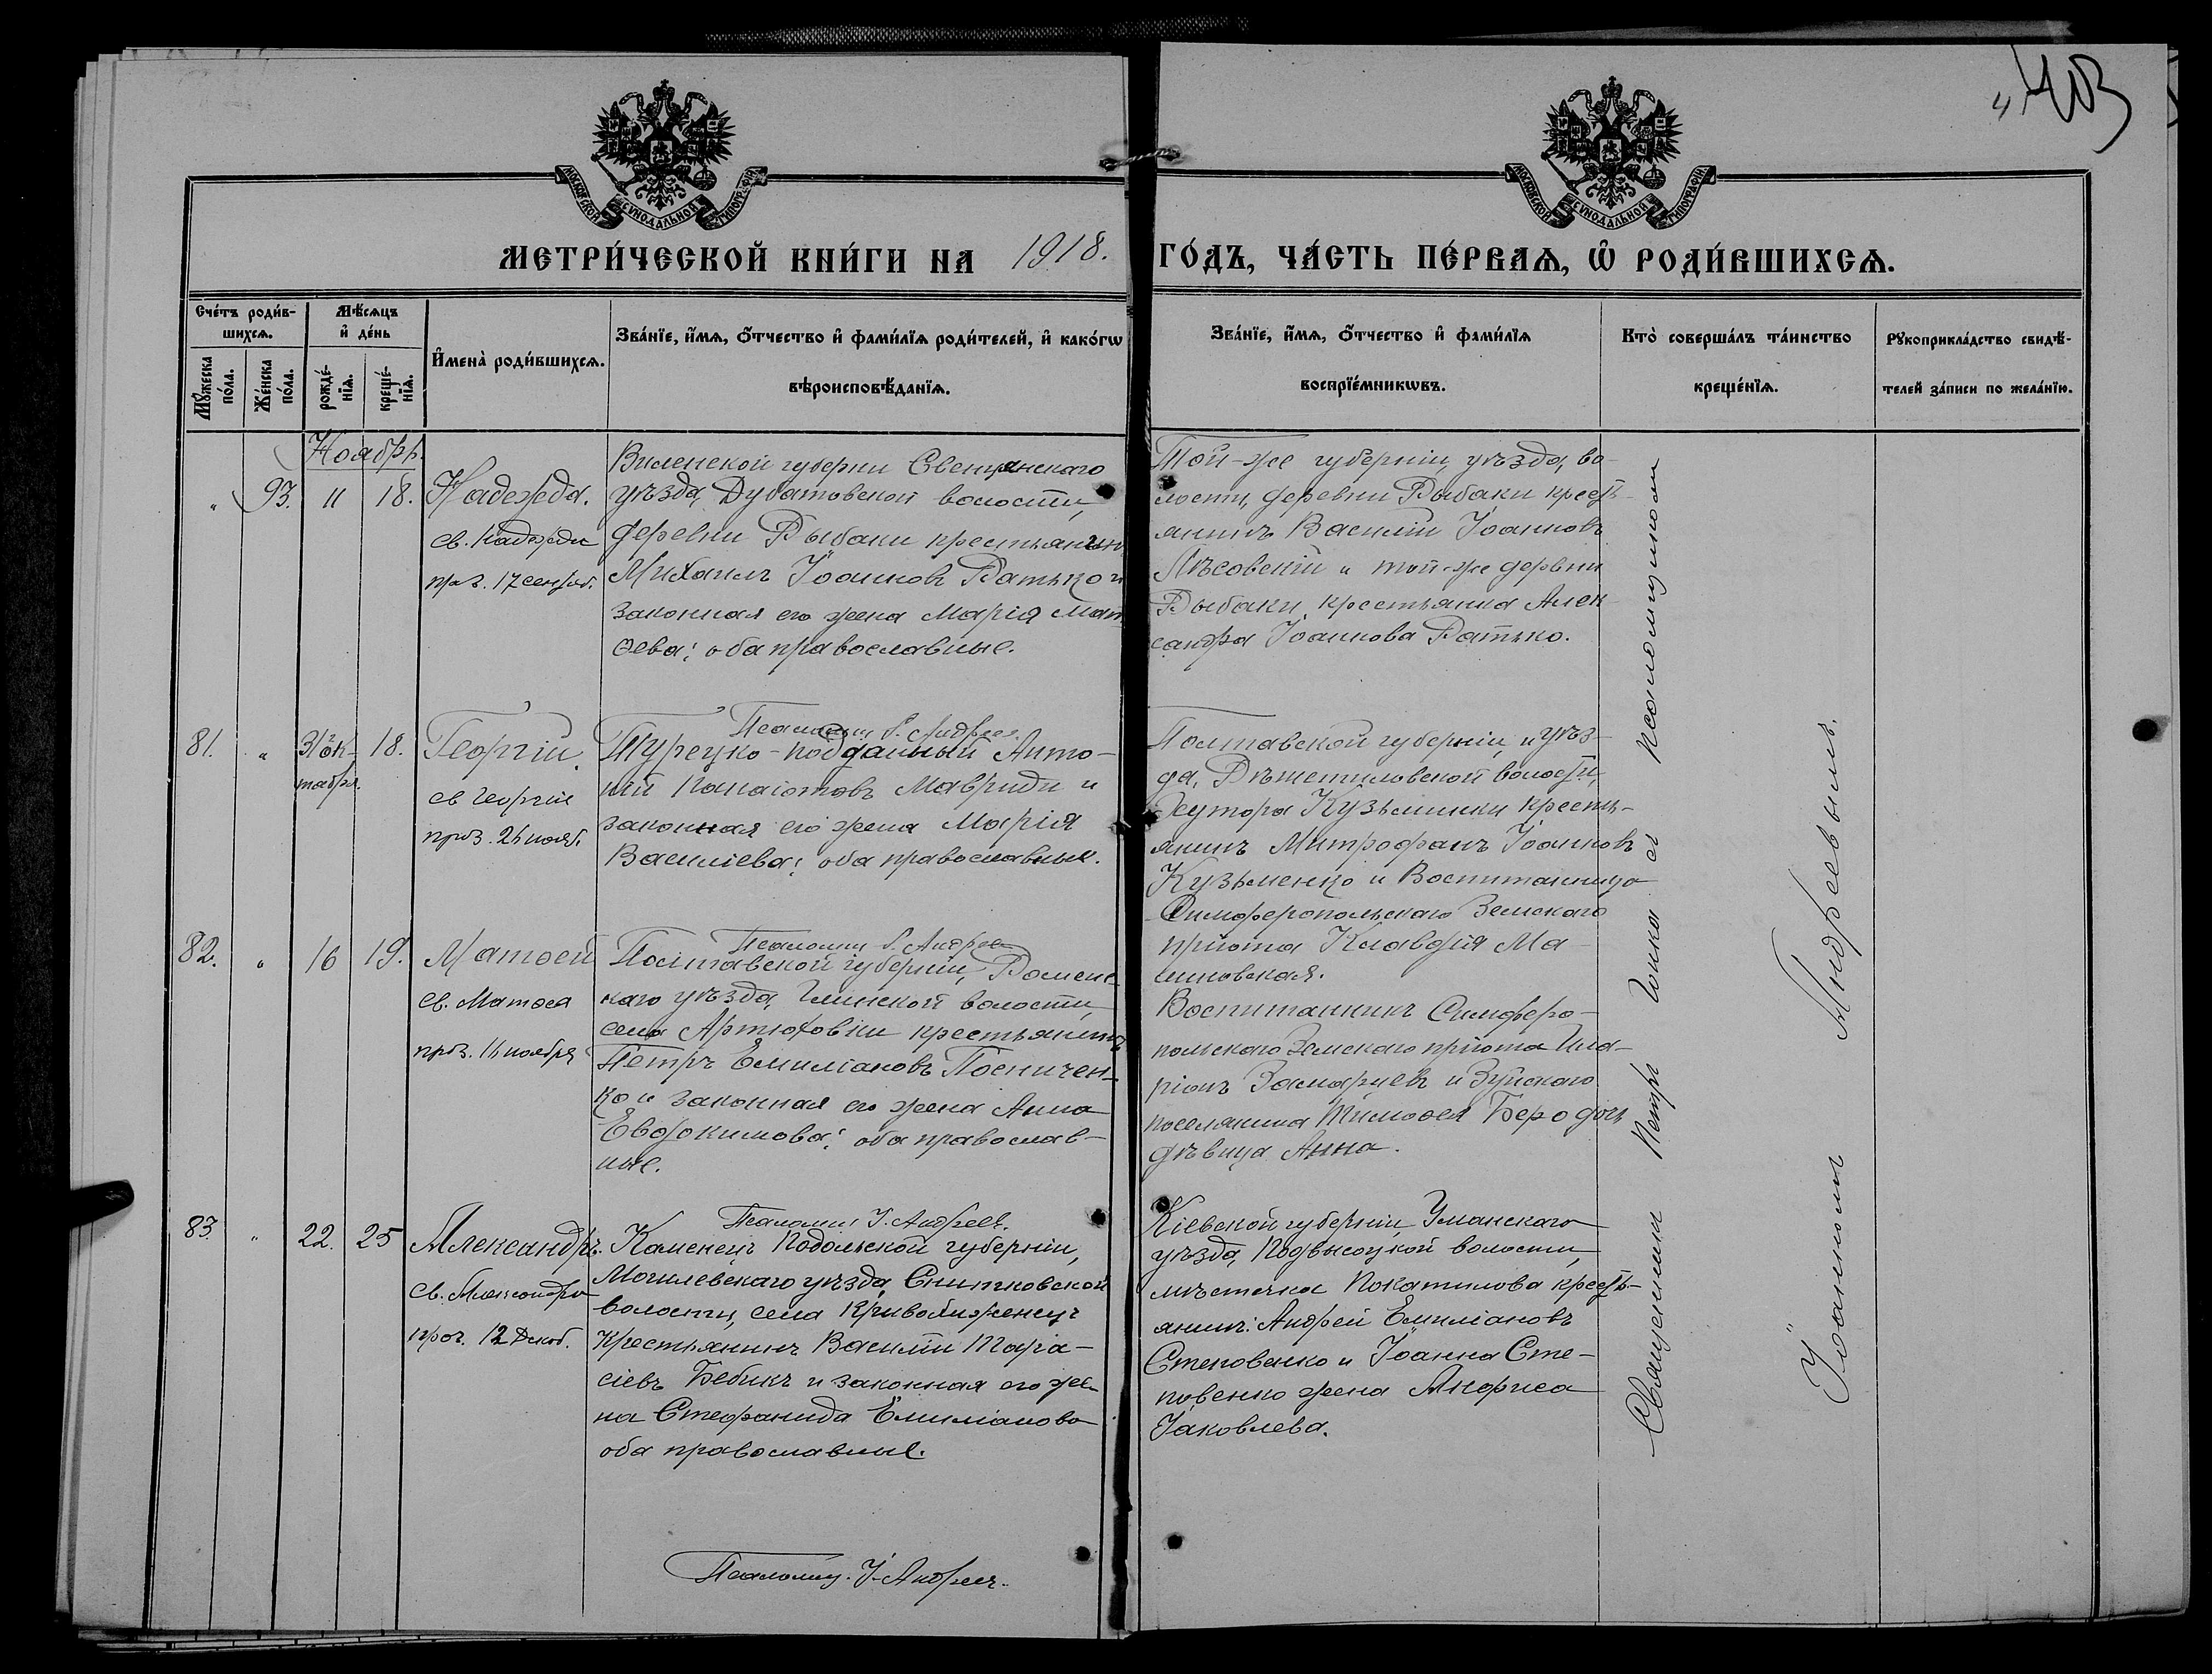 403
МОСКОВСКОЙ СУНОДАЛЬНОЙ ТИПОГРАФІИ
МОСКОВСКОЙ СУНОДАЛЬНОЙ ТИПОГРАФІИ
МЕТРИ́ЧЕСКОЙ КНИ́ГИ НА 1918. ГО́ДЪ, ЧА́СТЬ ПЕ́РВАѦ, Ѡ҆ РОДИ́ВШИХСѦ.
Сче́тъ роди́в-
шихсѧ.
Мꙋ́жеска по́ла.
Же́нска по́ла.
Мѣ́сѧцъ
и҆ де́нь
рожде́-
нїѧ.
креще́-
нїѧ.
И҆мена̀ роди́вшихсѧ.
Зва́нїе, и҆́мѧ, ѻ҆́тчество и҆ фами́лїѧ роди́телей, и҆ како́гѡ
вѣроисповѣ́данїѧ.
Зва́нїе, и҆́мѧ, ѻ҆́тчество и҆ фами́лїѧ
воспрїе́мникѡвъ.
Кто̀ соверша́лъ та́инство
креще́нїѧ.
Рꙋкоприкла́дство свидѣ́-
телей за́писи по жела́нїю.
Ноябрь.
" 93. 11 18. Надежда.
св. Надежды
праз. 17 сентяб.
Виленской губерніи Свенцянскаго
уѣзда, Дубатовской волости,
деревни Рыбаки крестьянин
Михаилъ Іоанновъ Ратько и
законная его жена Марія Мат
ѳева; оба православные.
Псаломщ. І. Андреев.
Той-же губерніи, уѣзда, во-
лости, деревни Рыбаки крестъ-
янинъ Василій Іоанновъ
Лѣсовскій и той-же деревни
Рыбаки, крестьянка Алек-
сандра Іоаннова Ратько.
81. " 31го ок-
тября. 18. Георгій.
св Георгія
праз. 26 нояб.
Турецко-подданный Анто-
ній Панаіотовъ Мавриди и
законная его жена Марія
Василіева; оба православные.
Псаломщ І. Андрее
Полтавской губерніи, и уѣз-
да, Рѣшетиловской волости,
хутора Кузьминки кресть-
янинъ Митрофанъ Іоанновъ
Кузьменко и Воспитанница
Симферопольскаго Земскаго
пріюта Клавдія Ма-
82. " 16 19. Матѳей
св. Матѳея
праз. 16 ноября
Полтавской губерніи, Роменс-
каго уѣзда, Глинской волости,
села Артюховки крестьянинъ
Петръ Емиліановъ Посничен-
ко и законная его жена Анна
Евдокимова; оба православ-
ные.
Псаломщ І. Андреев.
Воспитанникъ Симферо-
польскаго Земскаго пріюта Ила-
ріонъ и Зуйскаго
поселянина Тимоѳея Беро дочь
дѣвица Анна.
83. " 22. 25 Александръ.
св. Александра
праз. 12 Декаб.
Каменецъ Подольской губерніи,
Могилевскаго уѣзда, Снитковской
волости, села
Крестьянинъ Василій Тара-
сіевъ Бебикъ и законная его же-
на Стефанида Емиліанова
оба православные.
Псаломщ. І. Андреев.
Кіевской губерніи, Уманскаго
уѣзда, Подвысоцкой волости,
мѣстечка Покатилова кресть-
янинъ Андрей Емиліановъ
Степовенко и Іоанна Сте-
повенко жена Анфиса
Іаковлева.
Священникъ Петръ съ псаломщикомъ
Іоанномъ Андреевымъ.